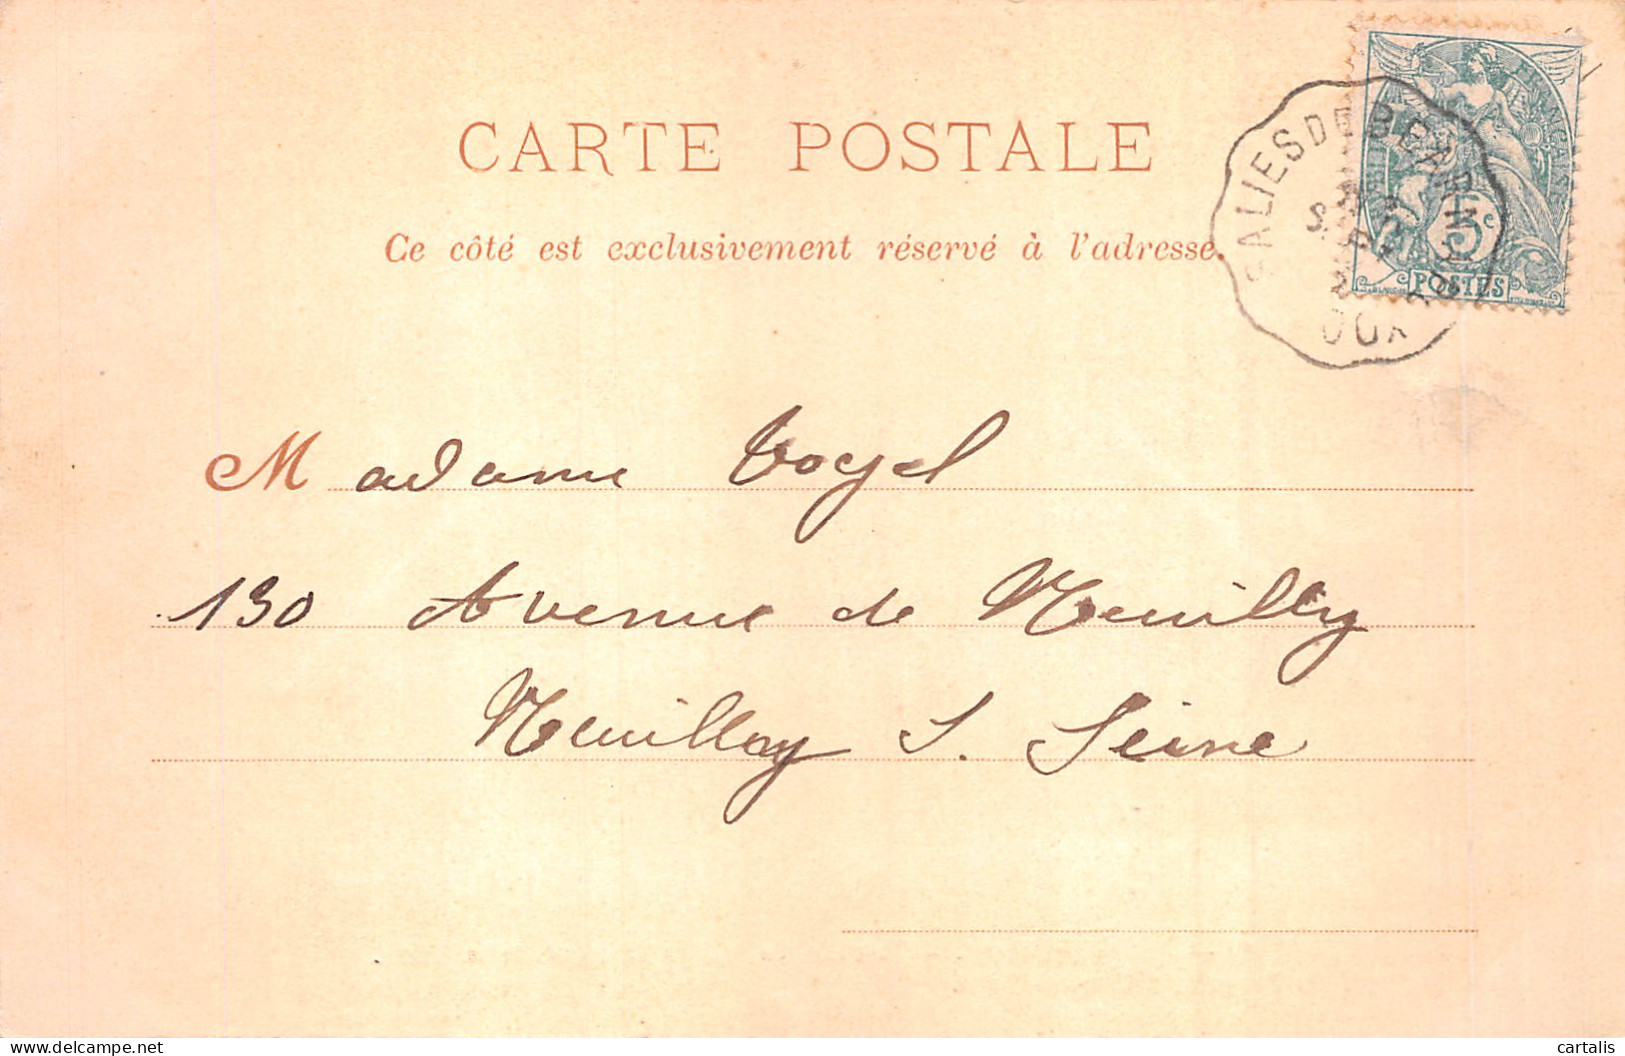 CARTE POSTALE
Ce côté est exclusivement réservé à l'adresse.
SALIES DE BEARN
FRANÇAISE
5c
POSTES
Madame Vogel
130 Avenue de Neuilly
Neuilly S. Seine
delcampe.net
cartalis